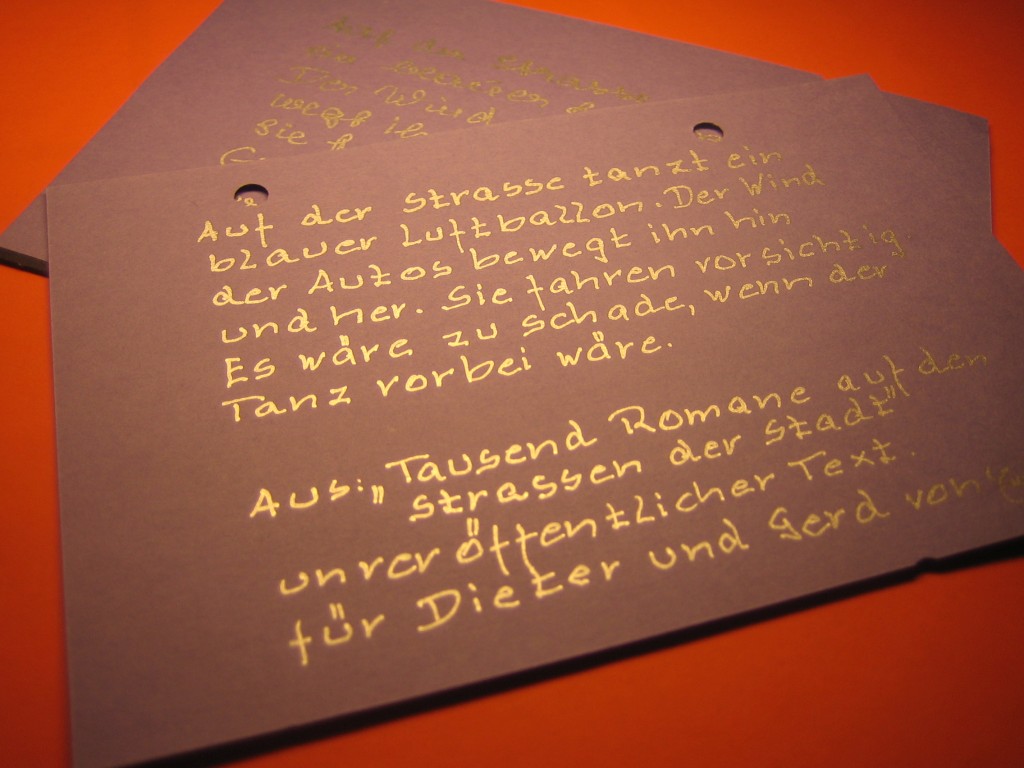 Auf der
sie
Auf der Strasse tanzt ein
blauer Luftballon. Der Wind
der Autos bewegt ihn hin
und her. Sie fahren vorsichtig.
Es wäre zu schade, wenn der
Tanz vorbei wäre.
Aus: „Tausend Romane auf den
Strassen der Stadt"
unveröffentlicher Text.
für Dieter und Gerd von